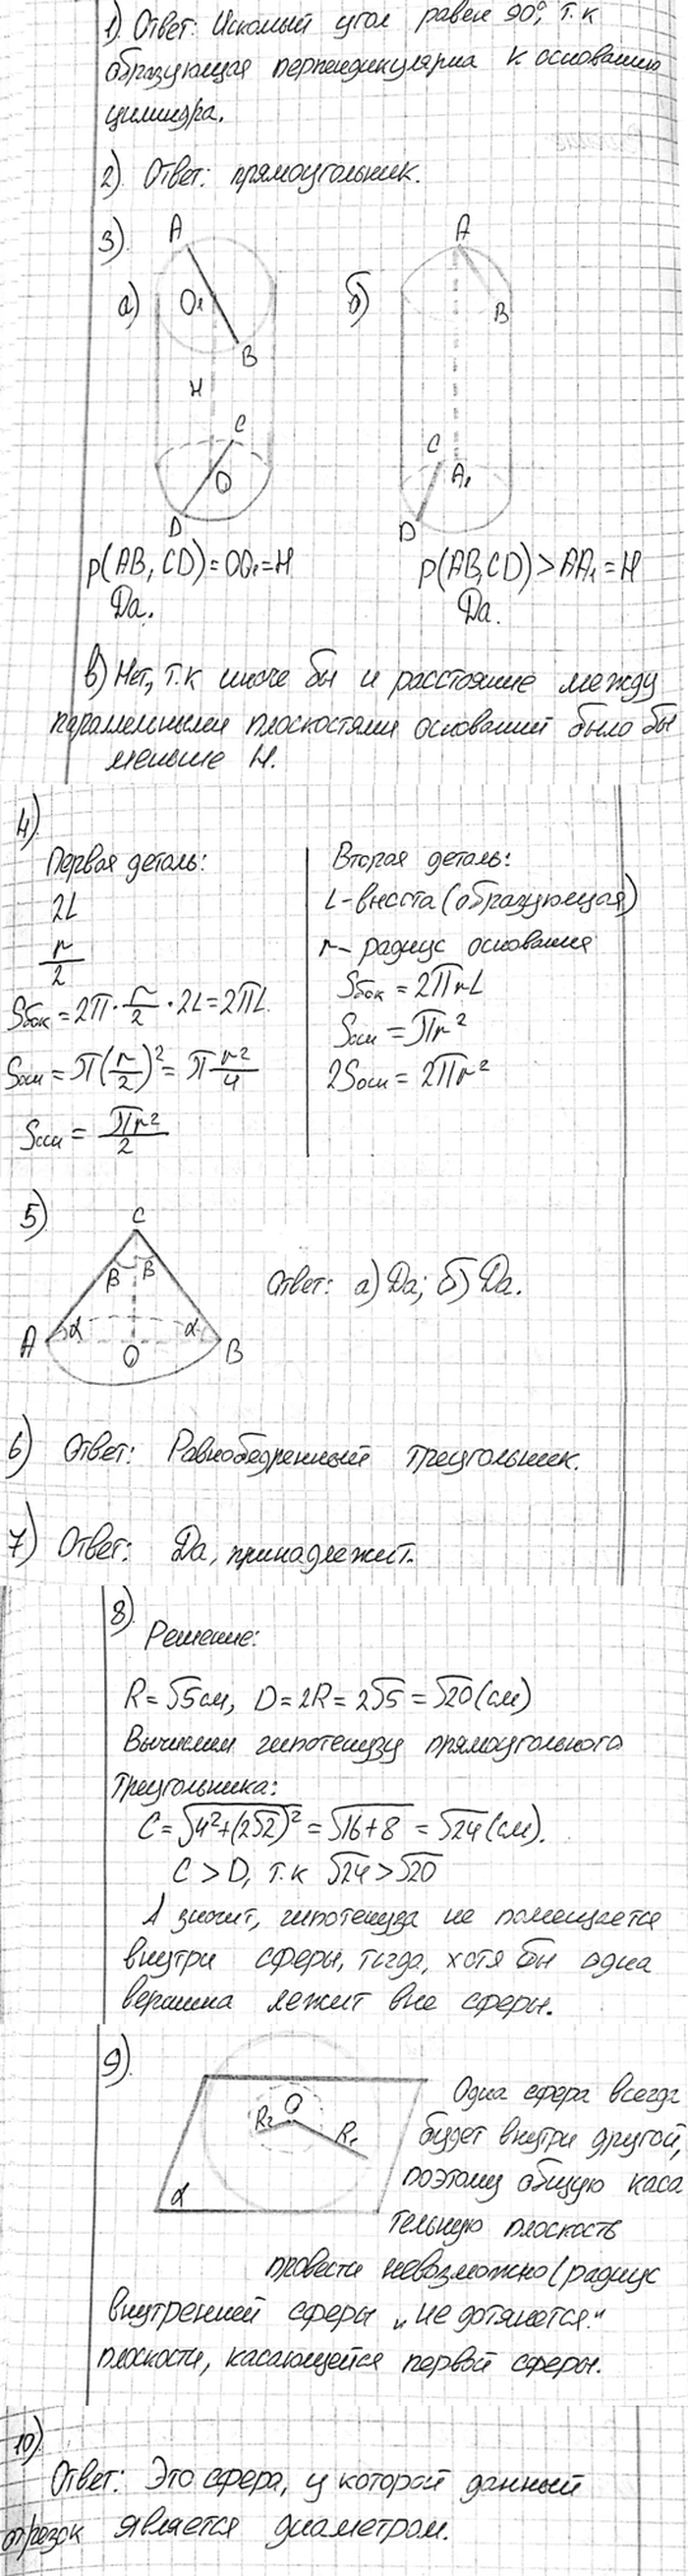 1). Ответ: Искомый угол равен 90°, т.к
образующая перпендикулярна к основанию
цилиндра.
2). Ответ: прямоугольник.
3).
а)
A
O₁
B
H
C
O
D
б)
A
B
C
A₁
D
р(AB, CD) = OO₁ = H
Да.
р(AB,CD) > AA₁ = H
Да.
в) Нет, т.к иначе бы и расстояние между
параллельными плоскостями оснований было бы
меньше H.
4)
Первая деталь:
2L
r/2
Sбок = 2π · r/2 · 2L = 2πL
Sосн = π(r/2)² = π r²/4
Sосн = πr²/2
Вторая деталь:
L - высота (образующая)
r - радиус основания
Sбок = 2πrL
Sосн = πr²
2Sосн = 2πr²
5)
C
β β
A α α B
O
Ответ: а) Да; б) Да.
6) Ответ: Равнобедренный треугольник.
7) Ответ: Да, принадлежит.
8)
Решение:
R = √5 см, D = 2R = 2√5 = √20 (см)
Вычислим гипотенузу прямоугольного
треугольника:
C = √4²+(2√2)² = √16+8 = √24 (см).
C > D, т.к √24 > √20
А значит, гипотенуза не помещается
внутри сферы, тогда, хотя бы одна
вершина лежит вне сферы.
9)
O
R₂
R₁
α
Одна сфера всегда
будет внутри другой,
поэтому общую каса
тельную плоскость
провести невозможно (радиус
внутренней сферы „не дотянется"
плоскости, касающейся первой сферы.
10)
Ответ: Это сфера, у которой данный
отрезок является диаметром.